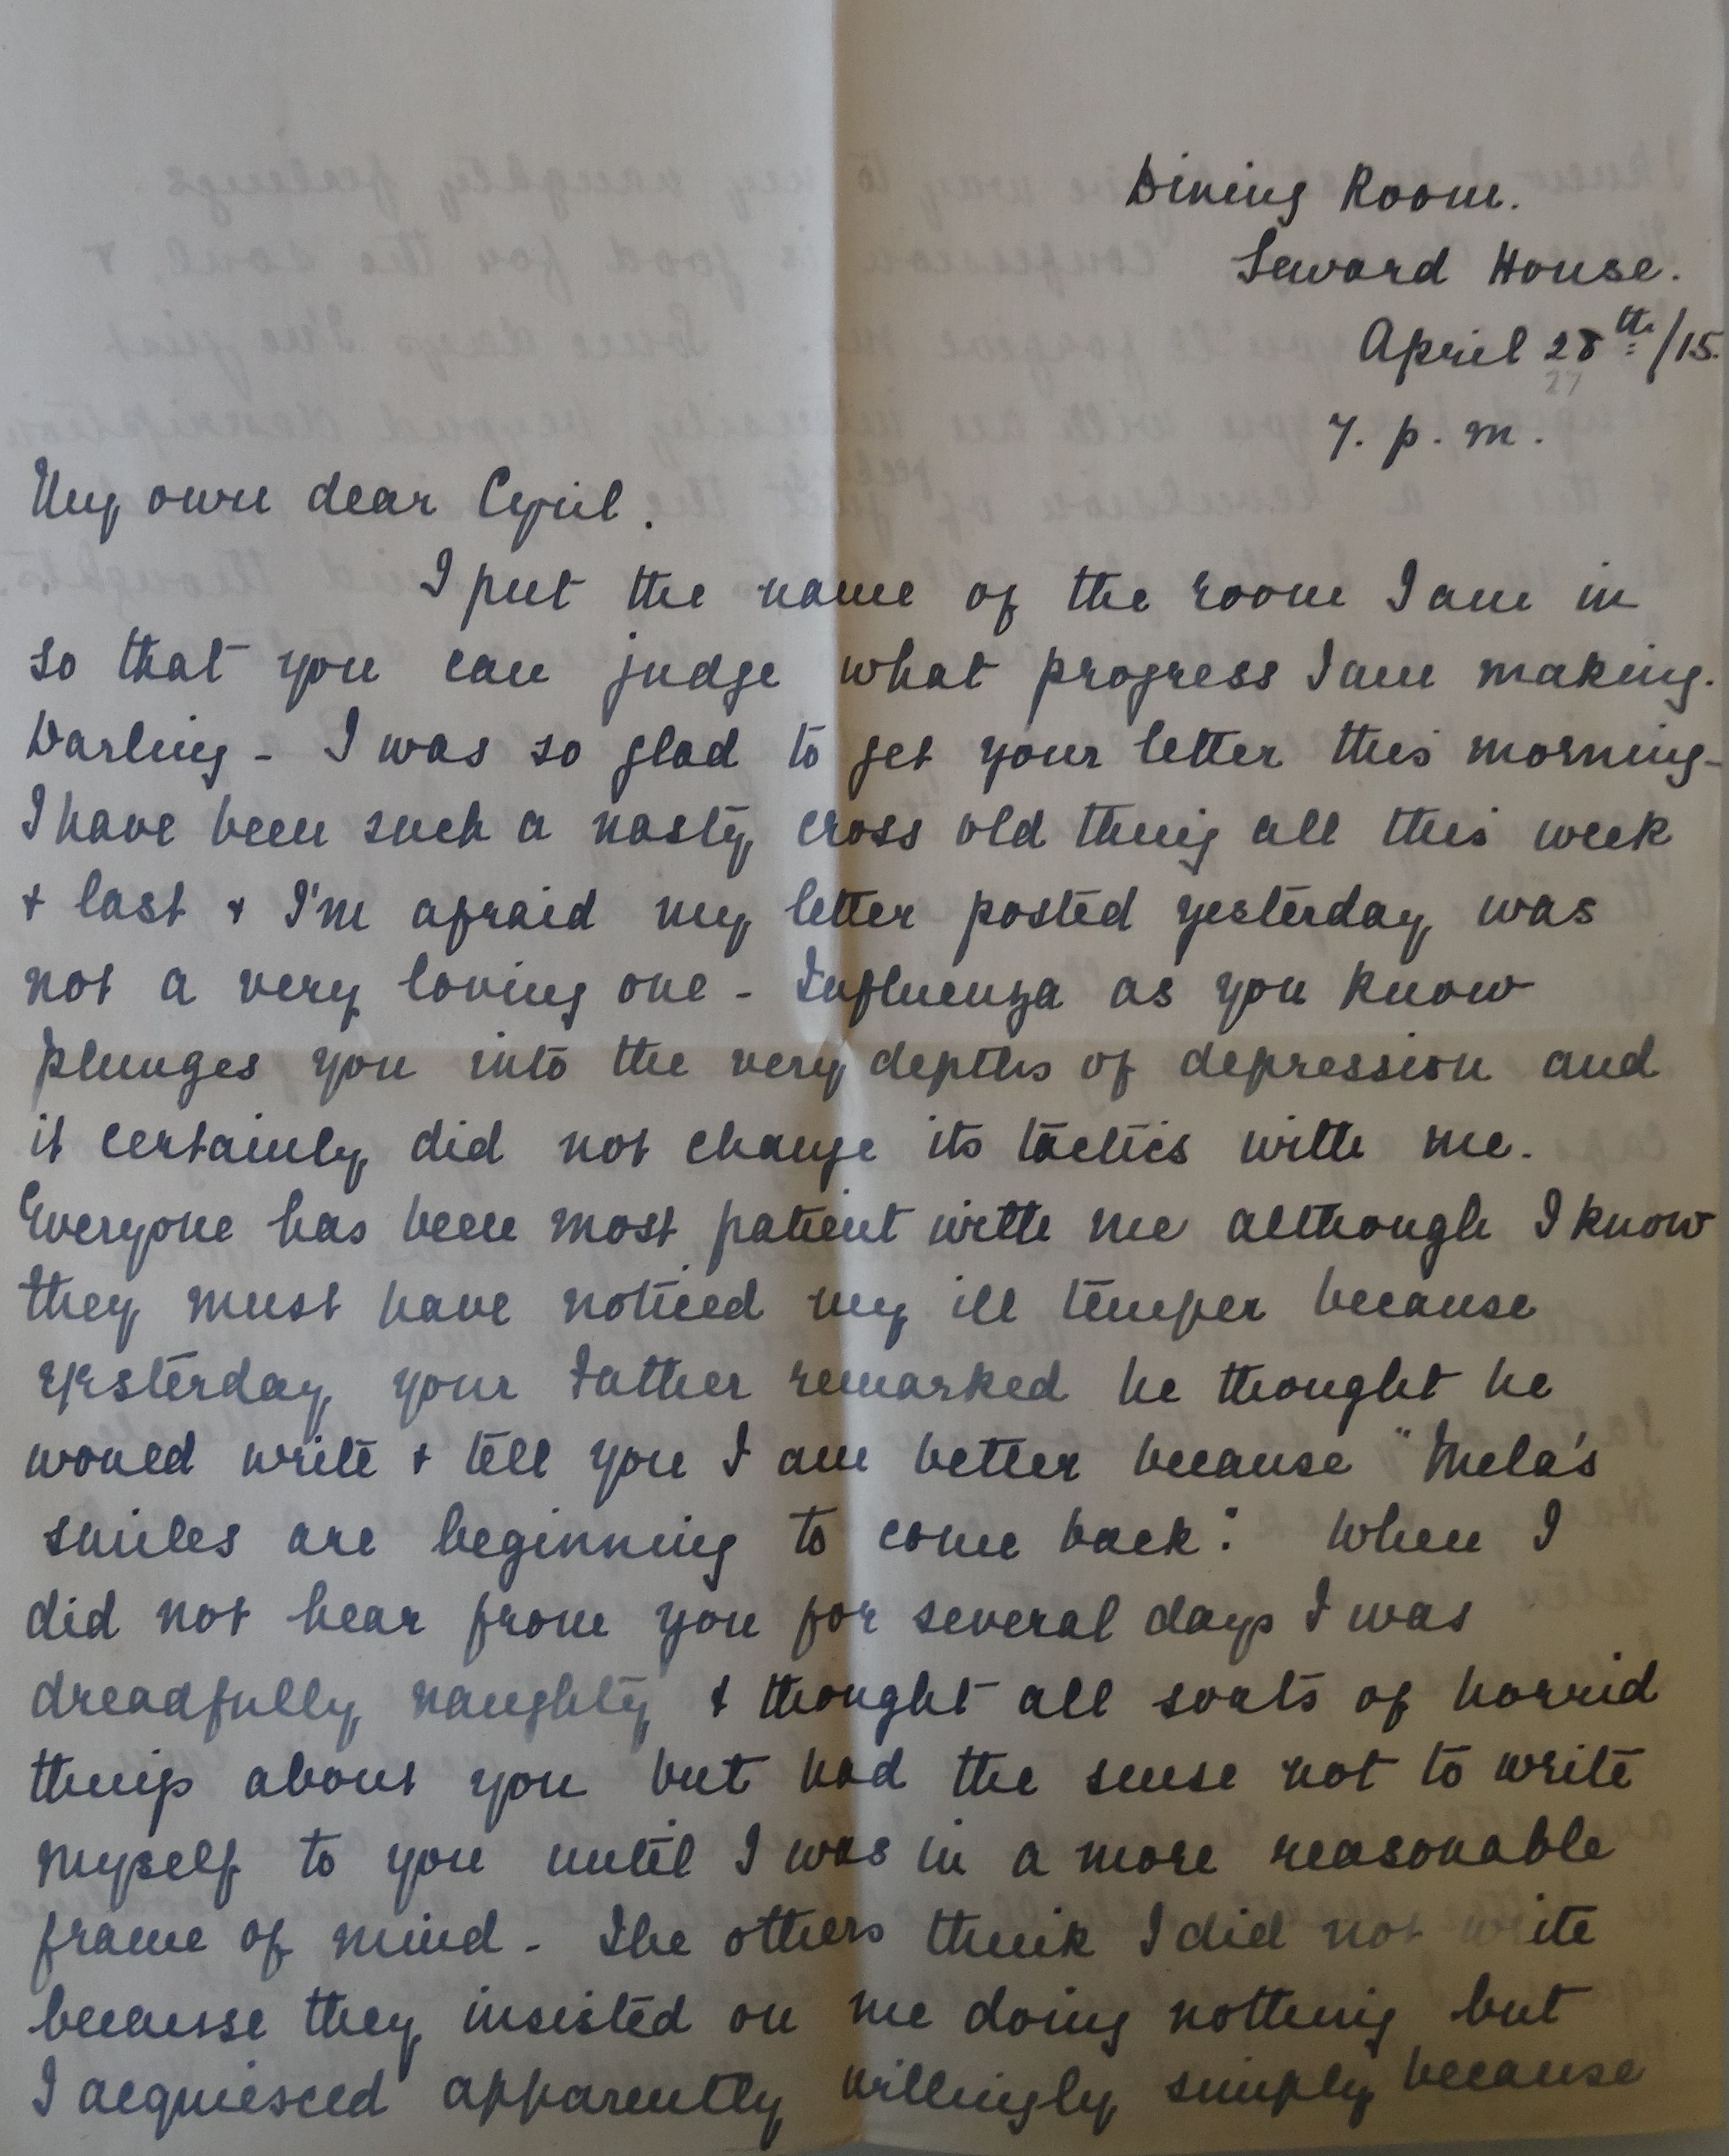 Dining Room.
Seward House.
April 28th/15.
27
7. p. m.
My own dear Cyril.
I put the name of the room I am in
so that you can judge what progress I am making.
Darling - I was so glad to get your letter this morning -
I have been such a nasty cross old thing all this week
+ last + I'm afraid my letter posted yesterday was
not a very loving one - Influenza as you know
plunges you into the very depths of depression and
it certainly did not change its tactics with me.
Everyone has been most patient with me although I know
they must have noticed my ill temper because
yesterday your Father remarked he thought he
would write + tell you I am better because "Mela's
smiles are beginning to come back". When I
did not hear from you for several days I was
dreadfully naughty + thought all sorts of horrid
things about you but had the sense not to write
myself to you until I was in a more reasonable
frame of mind - The others think I did not write
because they insisted on me doing nothing but
I acquiesced apparently willingly simply because